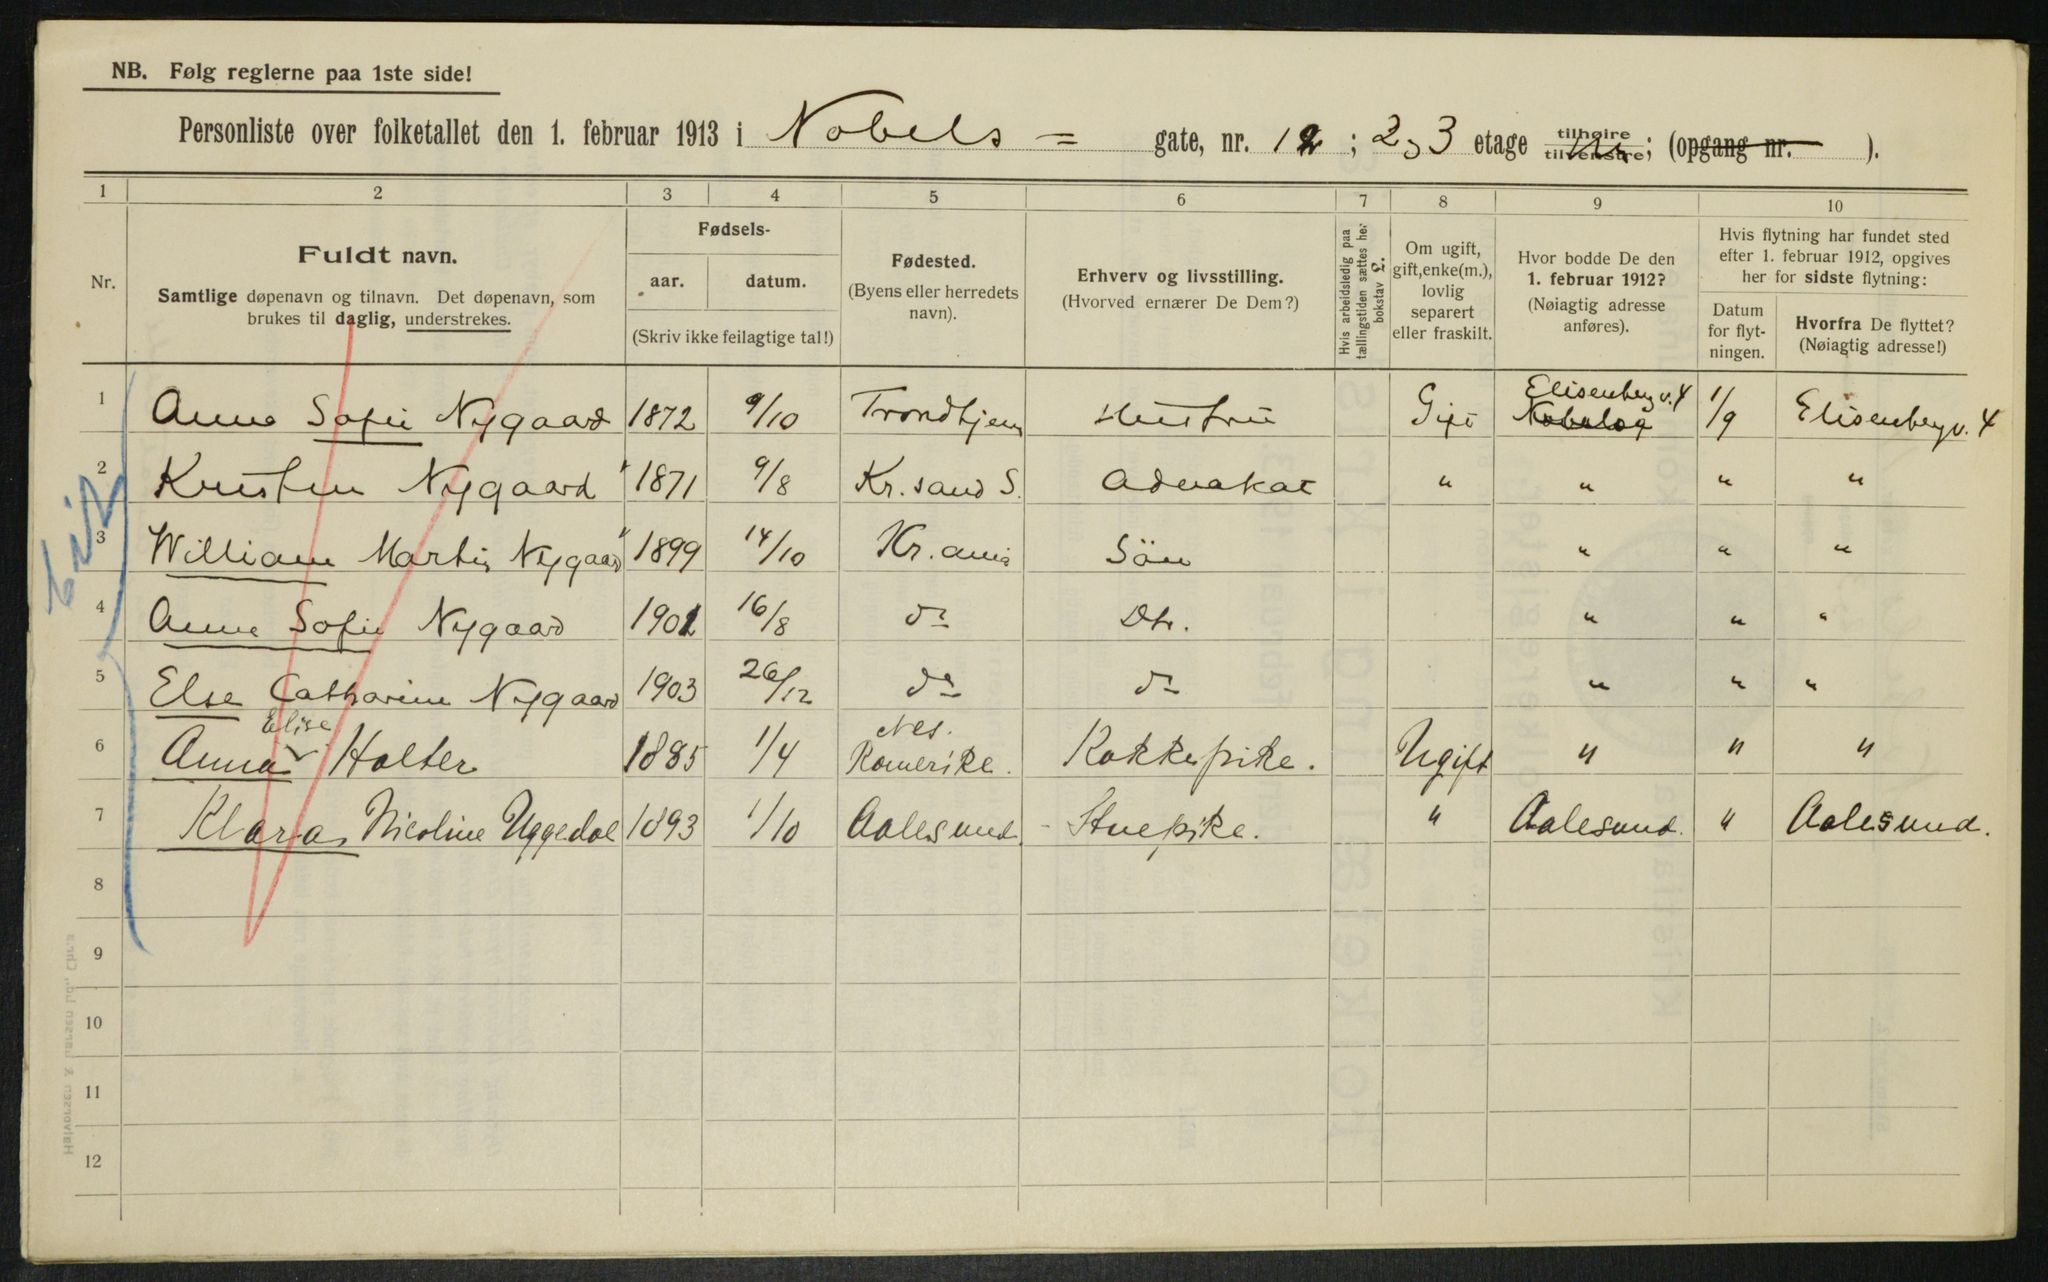 NB. Følg reglerne paa 1ste side!
Personliste over folketallet den 1. februar 1913 i Nobels = gate, nr. 12 ; 2 3 etage tilhøire tilvenstre; (opgang nr. ).
1 2 3 4 5 6 7 8 9 10
Nr.
Fuldt navn.
Samtlige døpenavn og tilnavn. Det døpenavn, som
brukes til daglig, understrekes.
Fødsels-
aar. datum.
(Skriv ikke feilagtige tal!)
Fødested.
(Byens eller herredets
navn).
Erhverv og livsstilling.
(Hvorved ernærer De Dem?)
Hvis arbeidsledig paa
tællingstiden sættes her
bokstav L.
Om ugift,
gift, enke(m.),
lovlig
separert
eller fraskilt.
Hvor bodde De den
1. februar 1912?
(Nøiagtig adresse
anføres).
Hvis flytning har fundet sted
efter 1. februar 1912, opgives
her for sidste flytning:
Datum
for flyt-
ningen.
Hvorfra De flyttet?
(Nøiagtig adresse!)
Elisenberg v. 4
1 Anna Sofie Nygaard 1872 9/10 Trondhjem Hustru Gift 1/9 Elisenberg v. 4
2 Kristen Nygaard " 1871 9/8 Kr.sand S. Advokat " " " "
3 William Martin Nygaard " 1899 14/10 Kr.ania Sön " " "
4 Anna Sofie Nygaard 1901 16/8 do Dtr. " " "
5 Else Catharine Nygaard 1903 26/12 do do " " "
Elise Nes.
6 Anna Holter 1885 1/4 Romerike. Kokkepike. Ugift " " "
7 Klara Nicoline Uggedal 1893 1/10 Aalesund. - Stuepike. " Aalesund. " Aalesund.
8
9
10
11
12
Halvorsen & Larsen Ltd., Chr.a